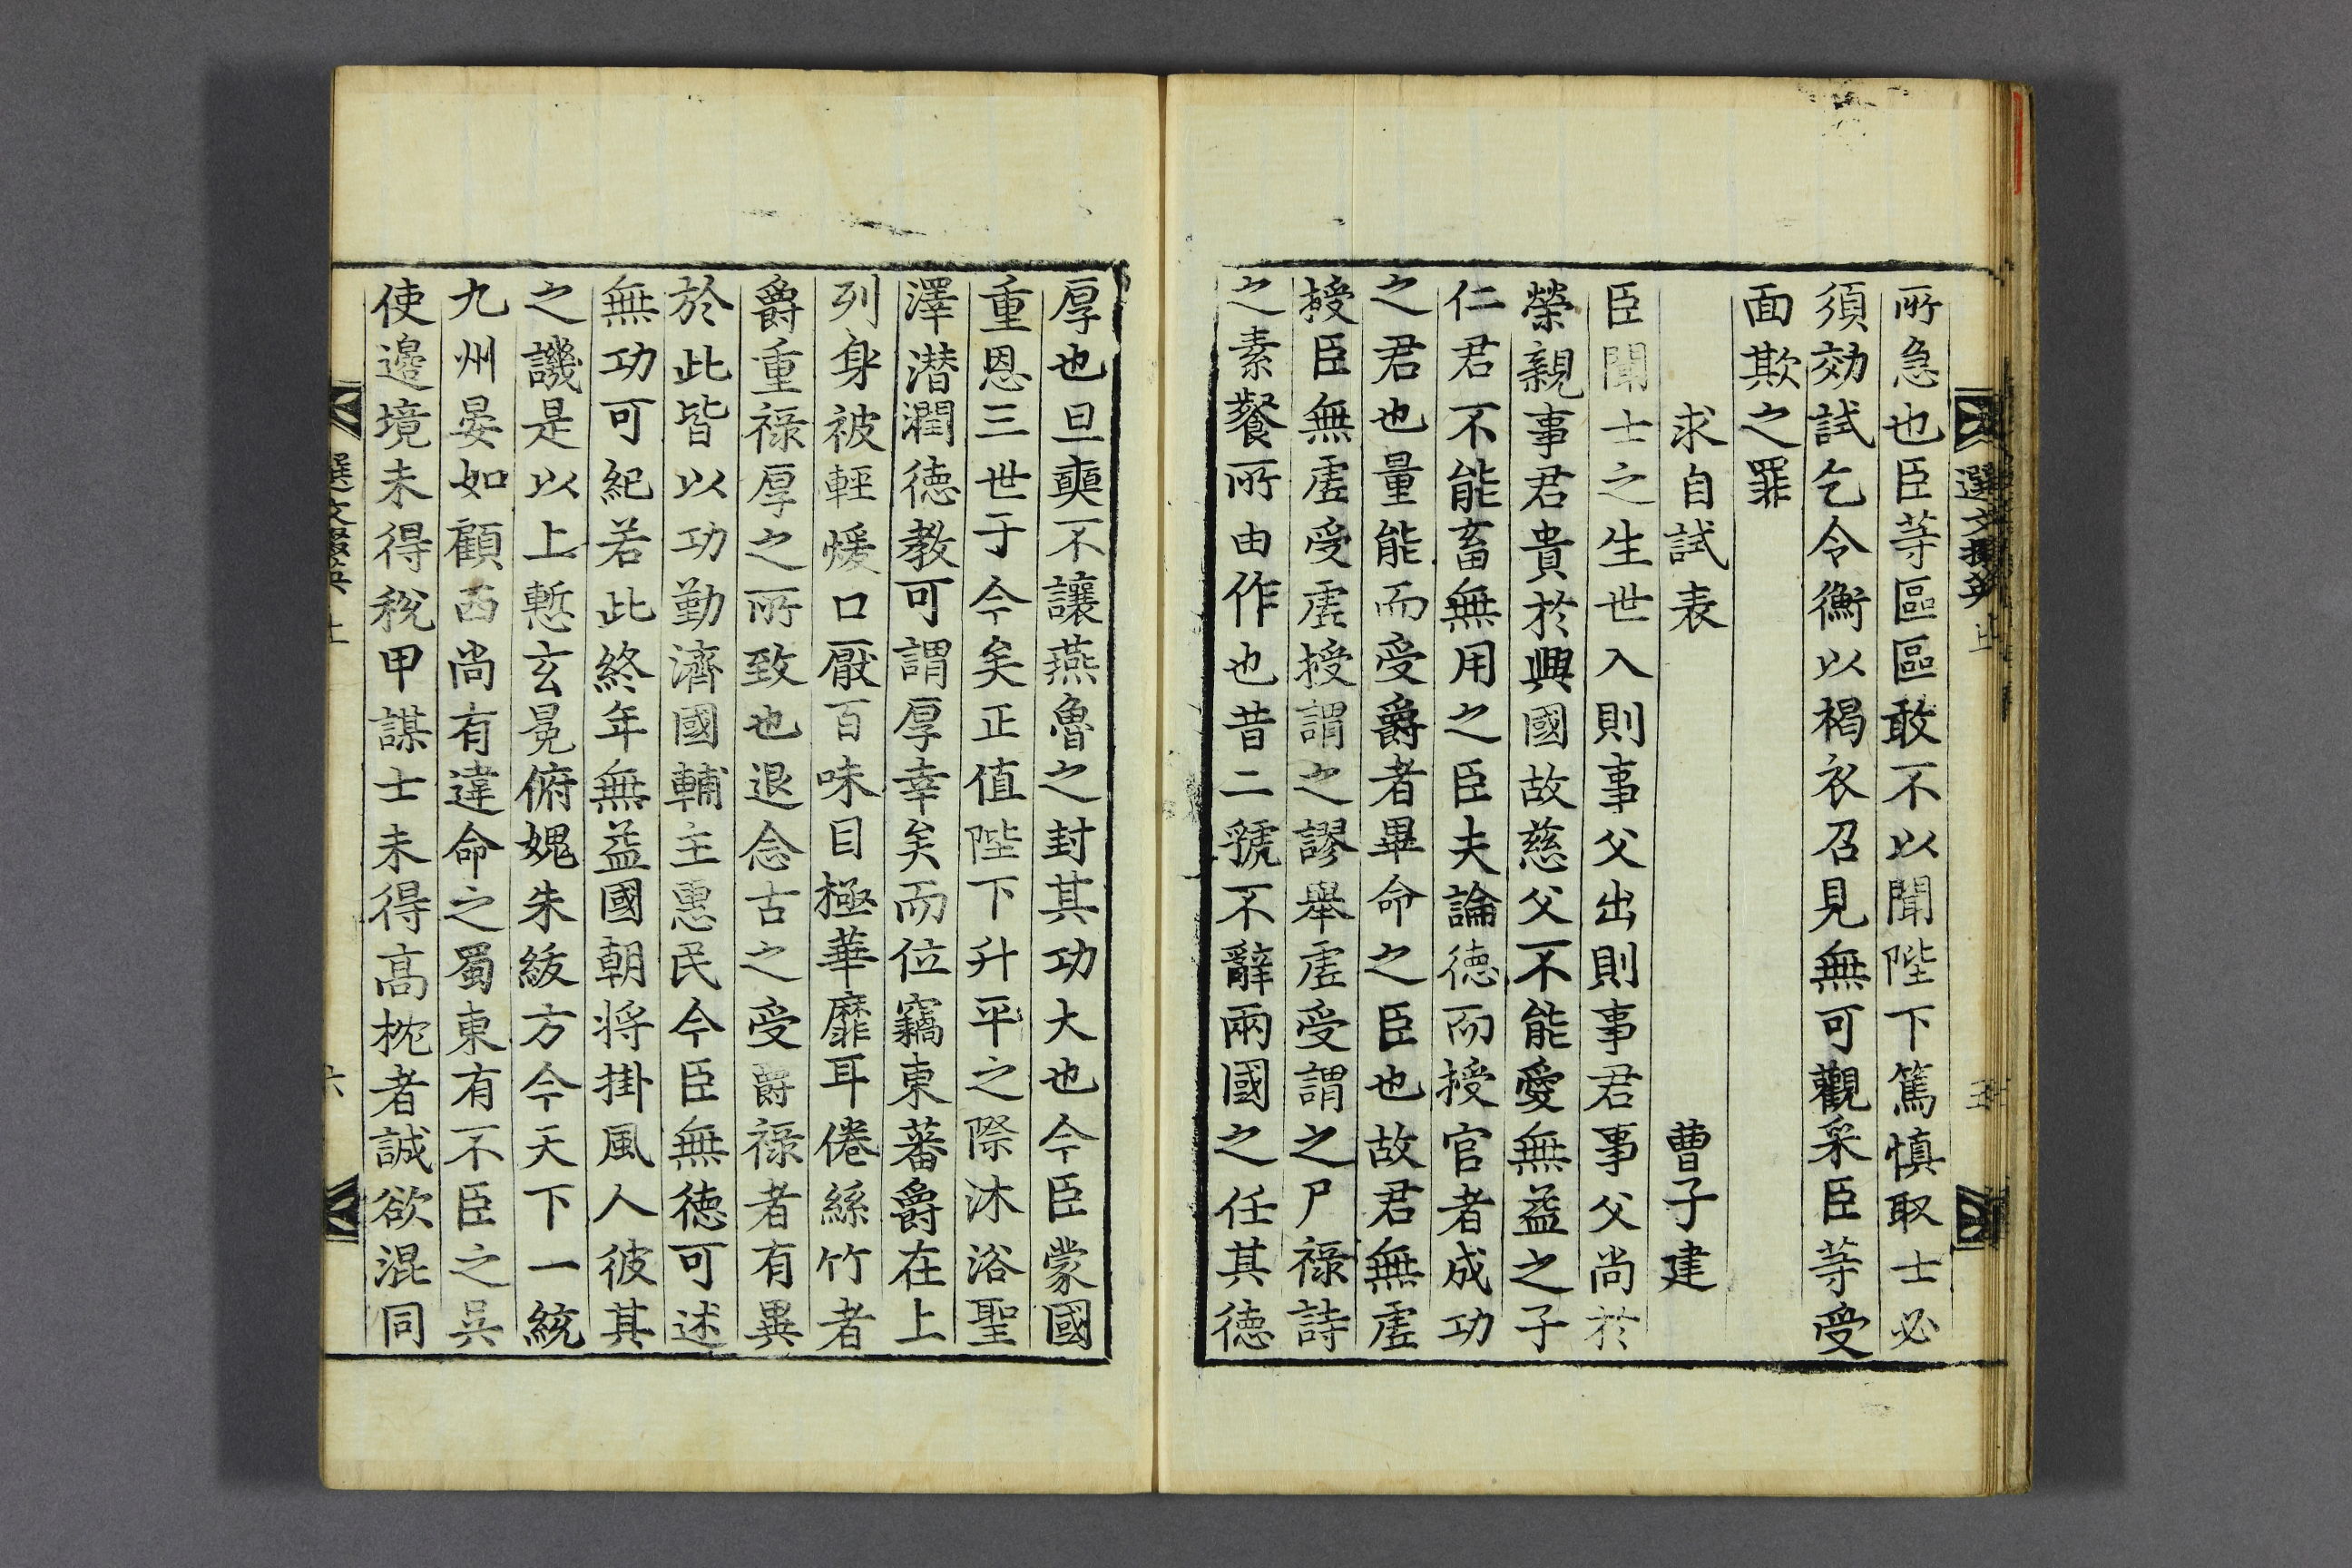 所急也臣等區區敢不以聞陛下篤慎取士必
須効試乞令衡以褐衣召見無可觀采臣等受
面欺之罪
求自試表　曹子建
臣聞士之生世入則事父出則事君事父尚於
榮親事君貴於興國故慈父不能愛無益之子
仁君不能畜無用之臣夫論德而授官者成功
之君也量能而受爵者畢命之臣也故君無虛
授臣無虛受虛授謂之謬舉虛受謂之尸祿詩
之素餐所由作也昔二虢不辭兩國之任其德
厚也旦奭不讓燕魯之封其功大也今臣蒙國
重恩三世于今矣正值陛下升平之際沐浴聖
澤潜潤德教可謂厚幸矣而位竊東蕃爵在上
列身被輕煖口厭百味目極華靡耳倦絲竹者
爵重祿厚之所致也退念古之受爵祿者有異
於此皆以功勤濟國輔主惠民今臣無德可述
無功可紀若此終年無益國朝將掛風人彼其
之譏是以上慙玄冕俯媿朱紱方今天下一統
九州晏如顧西尚有違命之蜀東有不臣之吳
使邊境未得稅甲謀士未得高枕者誠欲混同
六